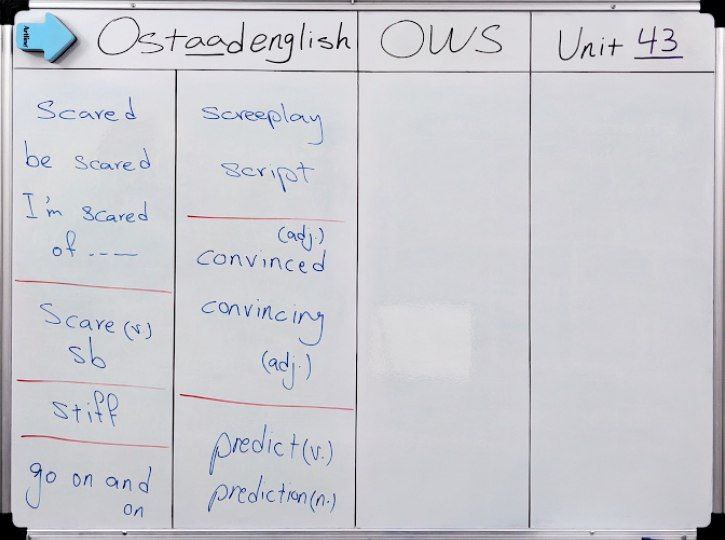 Ostaadenglish
OWS
Unit 43
Scared
be scared
I'm scared
of ----
Scare (v)
sb
stiff
go on and
on
screeplay
script
(adj.)
convinced
convincing
(adj.)
predict (v.)
prediction (n.)